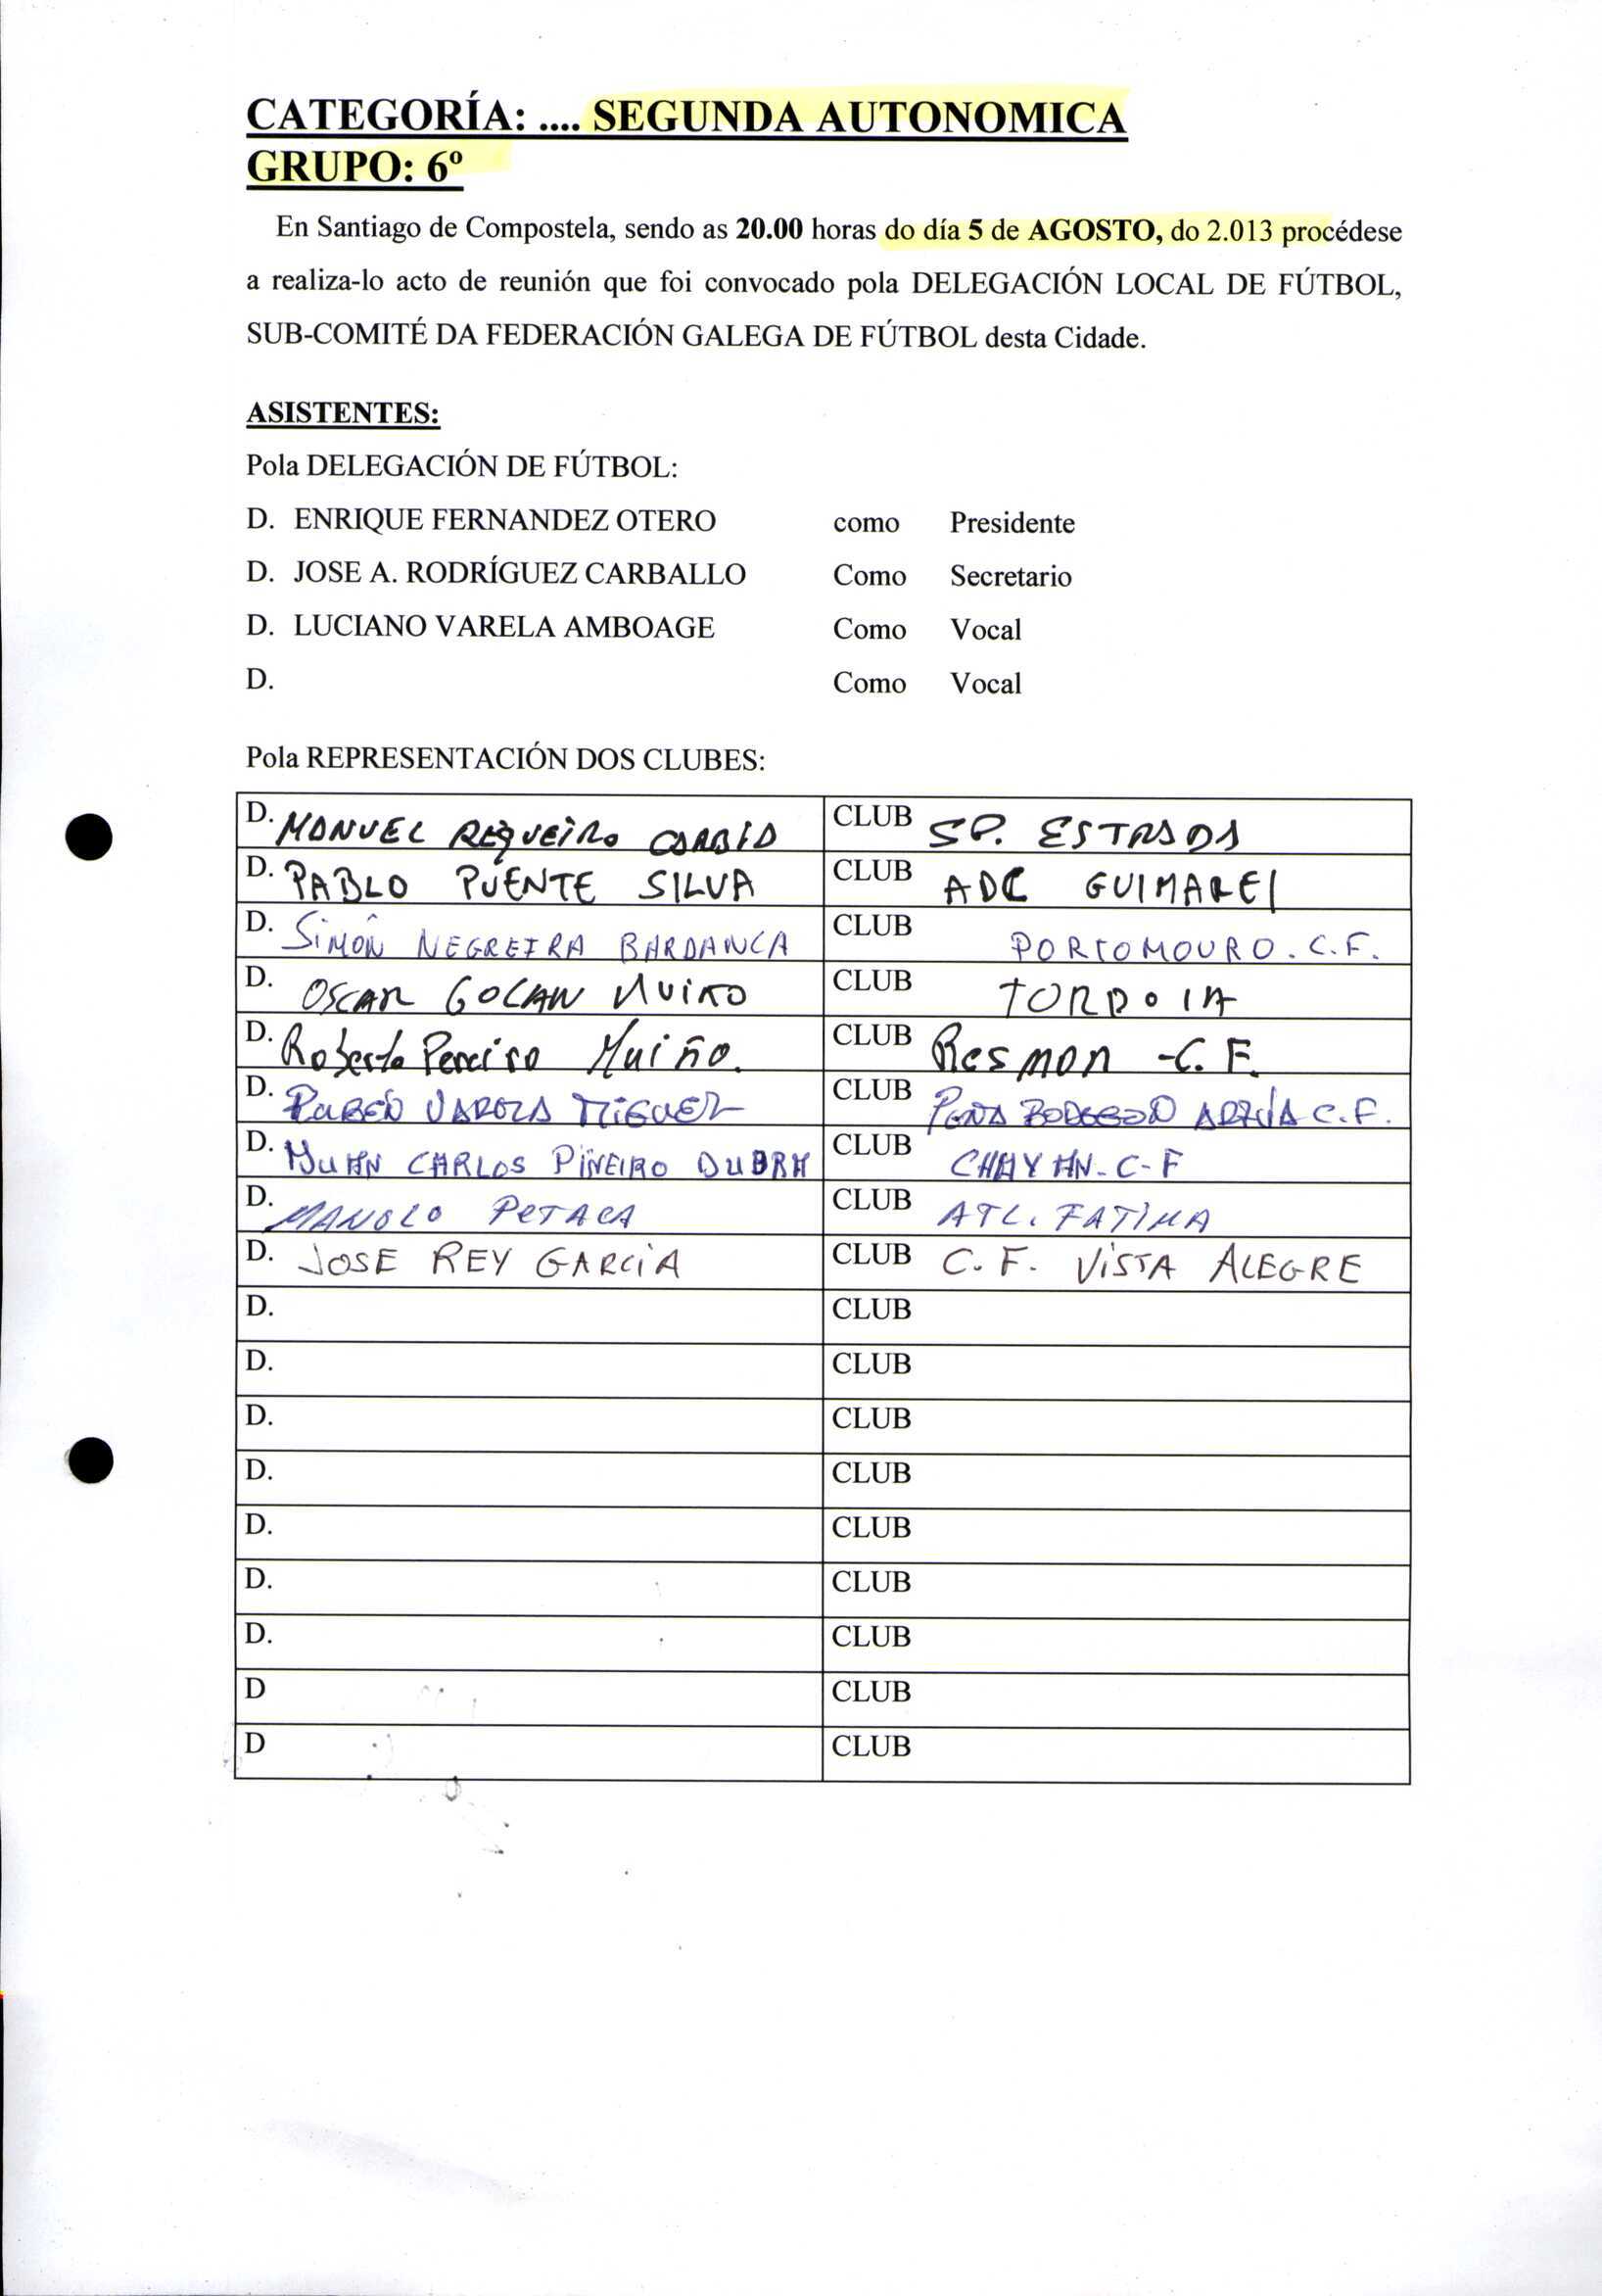 CATEGORÍA: .... SEGUNDA AUTONOMICA
GRUPO: 6º
En Santiago de Compostela, sendo as 20.00 horas do día 5 de AGOSTO, do 2.013 procédese
a realiza-lo acto de reunión que foi convocado pola DELEGACIÓN LOCAL DE FÚTBOL,
SUB-COMITÉ DA FEDERACIÓN GALEGA DE FÚTBOL desta Cidade.
ASISTENTES:
Pola DELEGACIÓN DE FÚTBOL:
D. ENRIQUE FERNANDEZ OTERO como Presidente
D. JOSE A. RODRÍGUEZ CARBALLO Como Secretario
D. LUCIANO VARELA AMBOAGE Como Vocal
D. Como Vocal
Pola REPRESENTACIÓN DOS CLUBES:
D. MANUEL REQUEIRO CLUB SP. ESTRADA
D. PABLO PUENTE SILVA CLUB ADC GUIMAREI
D. SIMÓN NEGREIRA BARDANCA CLUB PORTOMOURO. C.F.
D. OSCAR GOLAN MUIÑO CLUB TORDOIA
D. Roberto Pereiro Muiño. CLUB ROSMON -C. F.
D. RUBÉN VARELA MIGUEZ CLUB PEÑA BODEGON ARZÚA C.F.
D. JUAN CARLOS PIÑEIRO DUBRA CLUB CHAYAN-C-F
D. MANOLO PETACA CLUB ATL. FATIMA
D. JOSE REY GARCIA CLUB C. F. VISTA ALEGRE
D. CLUB
D. CLUB
D. CLUB
D. CLUB
D. CLUB
D. CLUB
D. CLUB
D CLUB
D CLUB